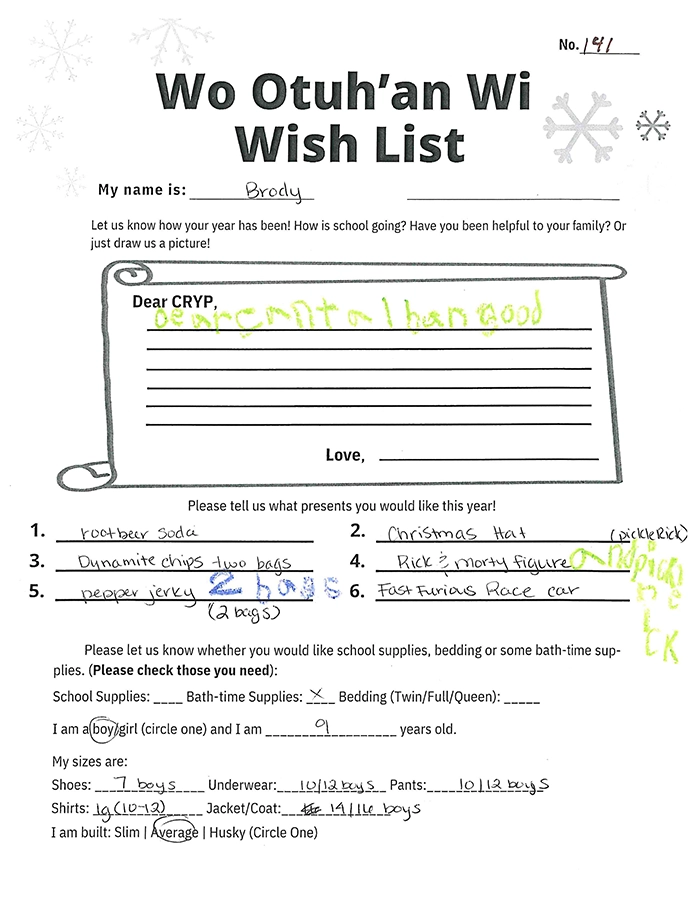 No. 141
Wo Otuh’an Wi
Wish List
My name is: Brody
Let us know how your year has been! How is school going? Have you been helpful to your family? Or
just draw us a picture!
Dear CRYP,
Dear canta I ban good
Love,
Please tell us what presents you would like this year!
1. rootbeer soda 2. Christmas Hat (pickle Rick)
3. Dynamite chips two bags 4. Rick & morty figure and pick
5. pepper jerky 2 bags 6. Fast Furious Race car
(2 bags)
Please let us know whether you would like school supplies, bedding or some bath-time sup-
plies. (Please check those you need):
School Supplies: ____ Bath-time Supplies: _x_ Bedding (Twin/Full/Queen): _____
I am a boy/girl (circle one) and I am 9 years old.
My sizes are:
Shoes: 7 boys Underwear: 10/12 boys Pants: 10/12 boys
Shirts: lg (10-12) Jacket/Coat: 14/16 boys
I am built: Slim | Average | Husky (Circle One)